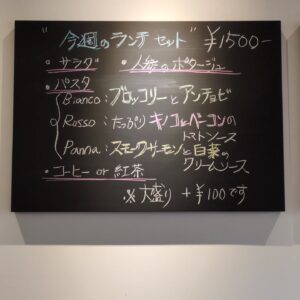 "今週のランチセット" ¥1500-
・サラダ ・人参のポタージュ
・パスタ
Bianco:ブロッコリーとアンチョビ
Rosso:たっぷりキノコとベーコンの
トマトソース
Panna:スモークサーモンと白菜の
クリームソース
・コーヒー or 紅茶
※大盛り +¥100です